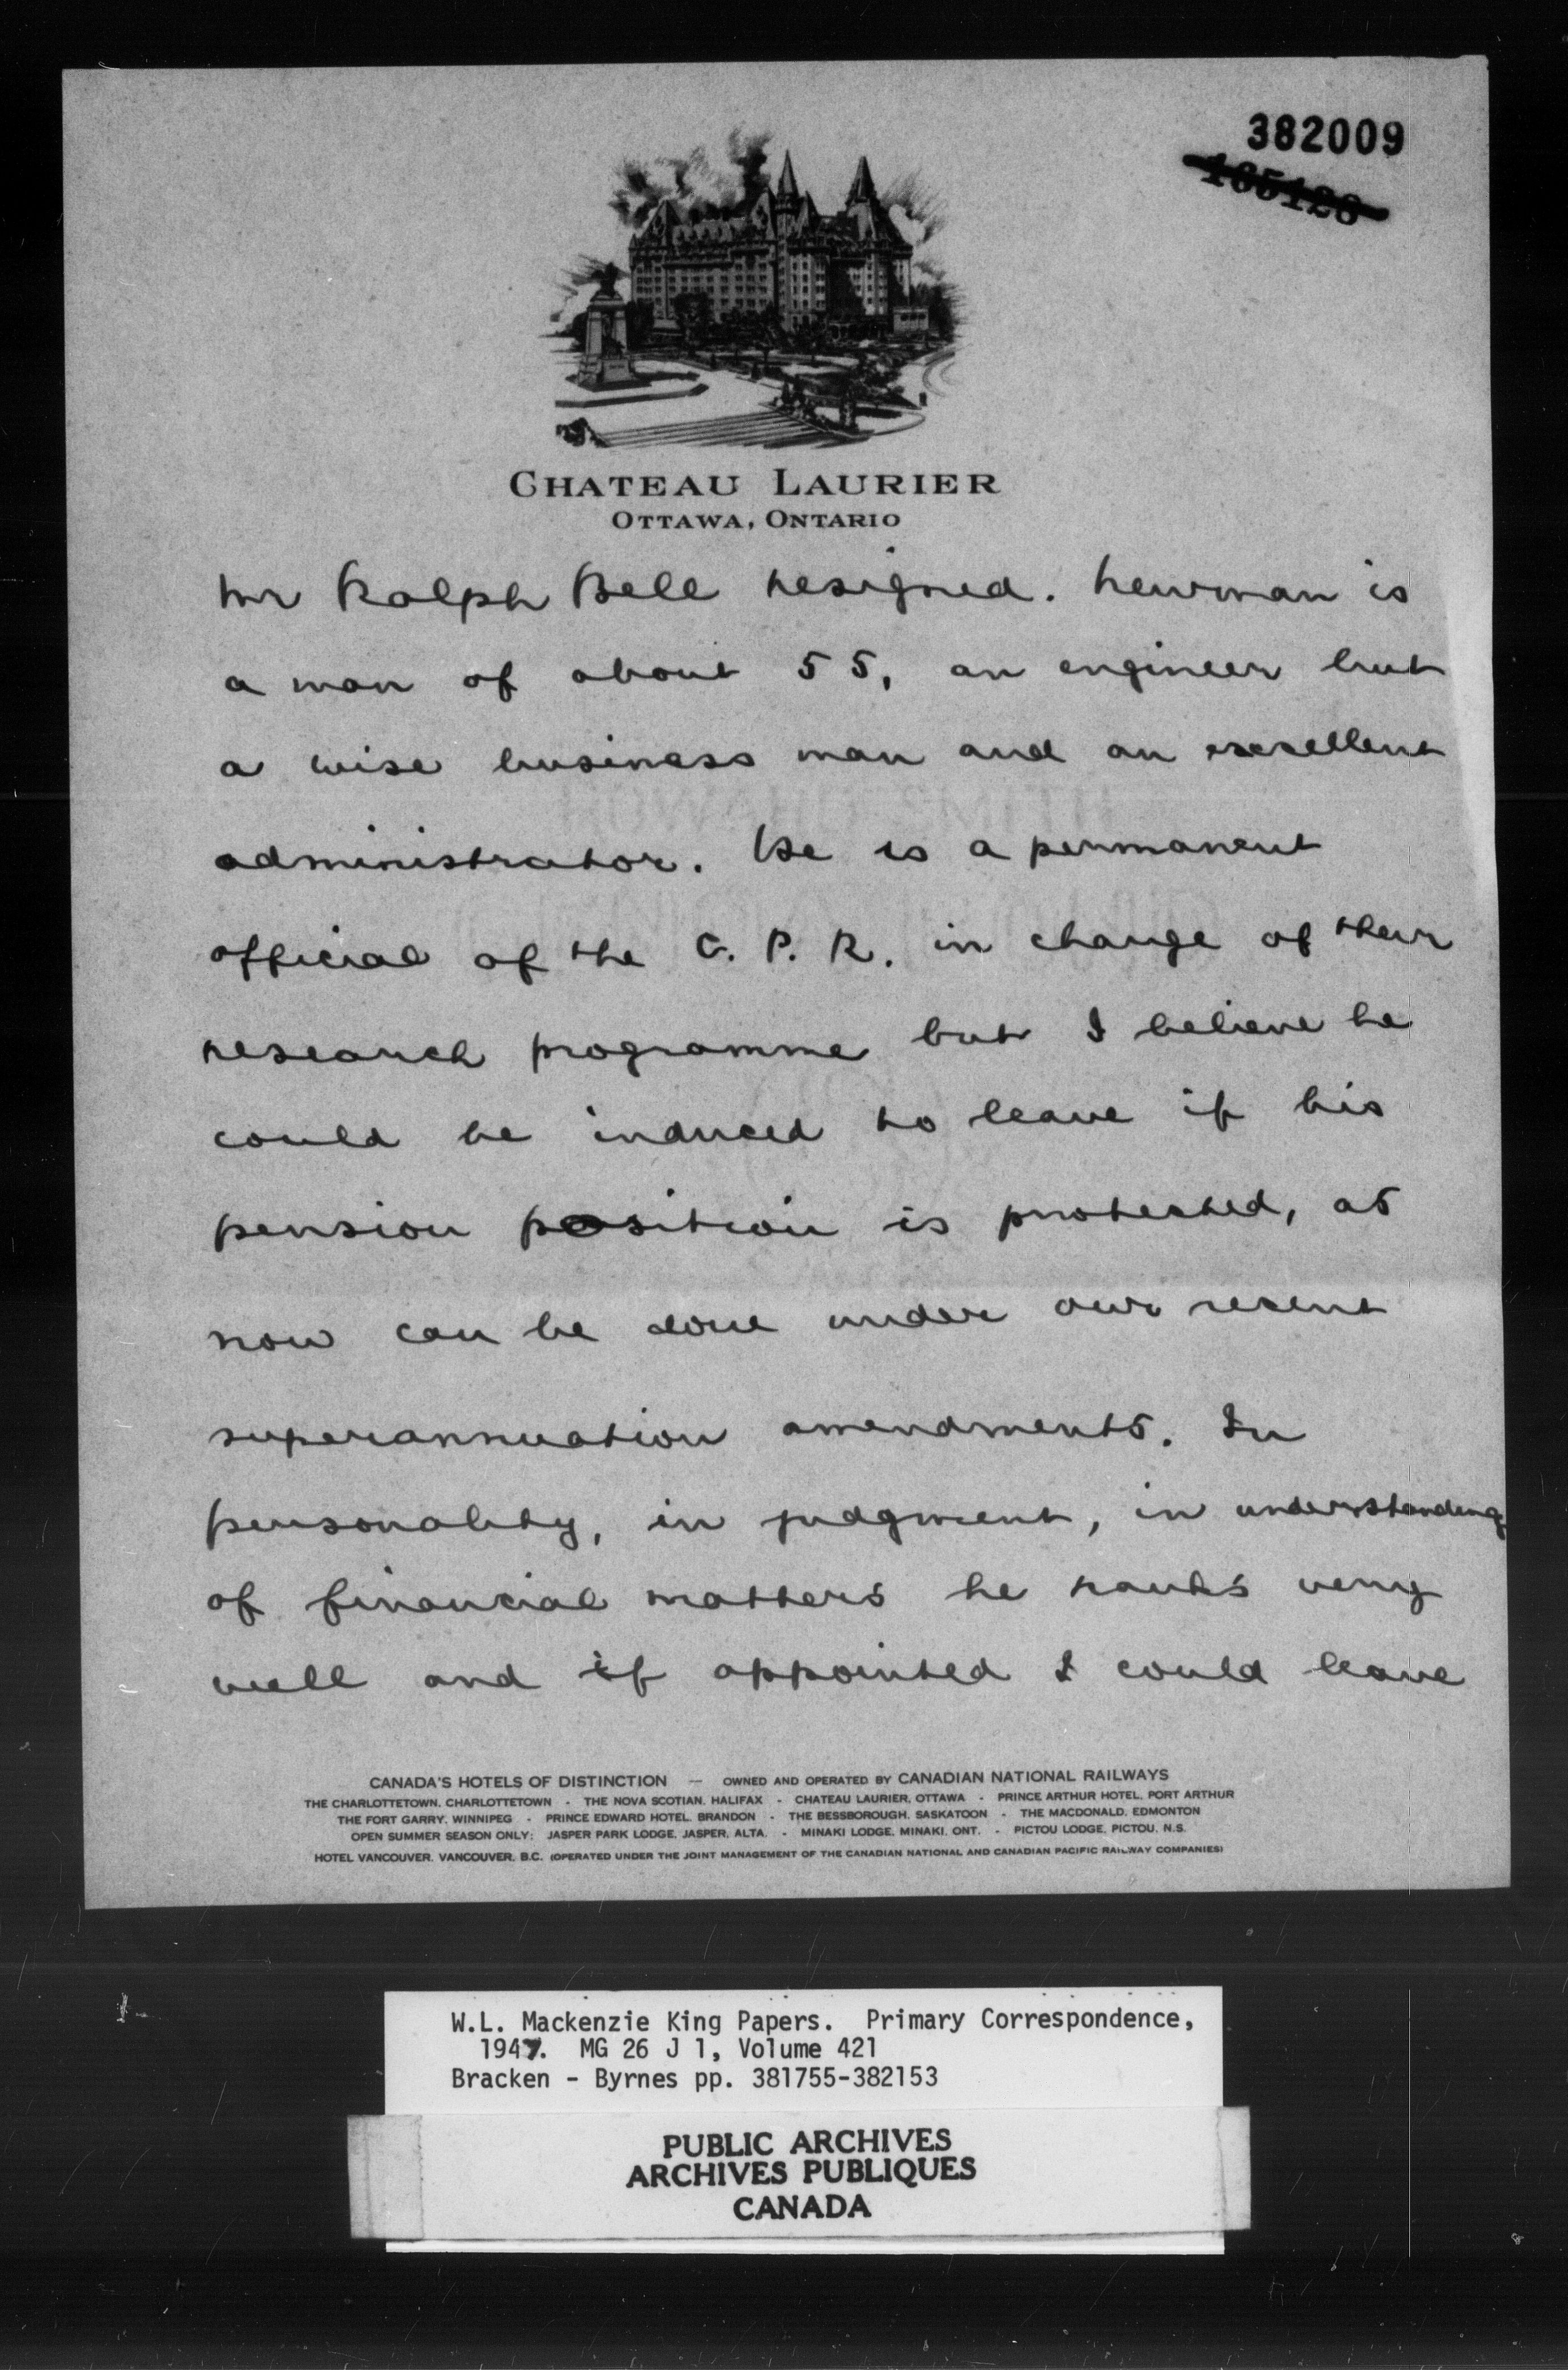 382009
CHATEAU LAURIER
OTTAWA, ONTARIO
Mr Ralph Bell resigned. Newman is
a man of about 55, an engineer but
a wise business man and an excellent
administrator. He is a permanent
official of the C. P. R. in charge of their
research programme but I believe he
could be induced to leave if his
pension position is protected, as
now can be done under our recent
superannuation amendments. In
personality, in judgment, in understanding
of financial matters he ranks very
well and if appointed I could leave
CANADA'S HOTELS OF DISTINCTION — OWNED AND OPERATED BY CANADIAN NATIONAL RAILWAYS
THE CHARLOTTETOWN, CHARLOTTETOWN - THE NOVA SCOTIAN, HALIFAX - CHATEAU LAURIER, OTTAWA - PRINCE ARTHUR HOTEL, PORT ARTHUR
THE FORT GARRY, WINNIPEG - PRINCE EDWARD HOTEL, BRANDON - THE BESSBOROUGH, SASKATOON - THE MACDONALD, EDMONTON
OPEN SUMMER SEASON ONLY: JASPER PARK LODGE, JASPER, ALTA. - MINAKI LODGE, MINAKI, ONT. - PICTOU LODGE, PICTOU, N.S.
HOTEL VANCOUVER, VANCOUVER, B.C. (OPERATED UNDER THE JOINT MANAGEMENT OF THE CANADIAN NATIONAL AND CANADIAN PACIFIC RAILWAY COMPANIES)
W.L. Mackenzie King Papers. Primary Correspondence,
1947. MG 26 J 1, Volume 421
Bracken - Byrnes pp. 381755-382153
PUBLIC ARCHIVES
ARCHIVES PUBLIQUES
CANADA